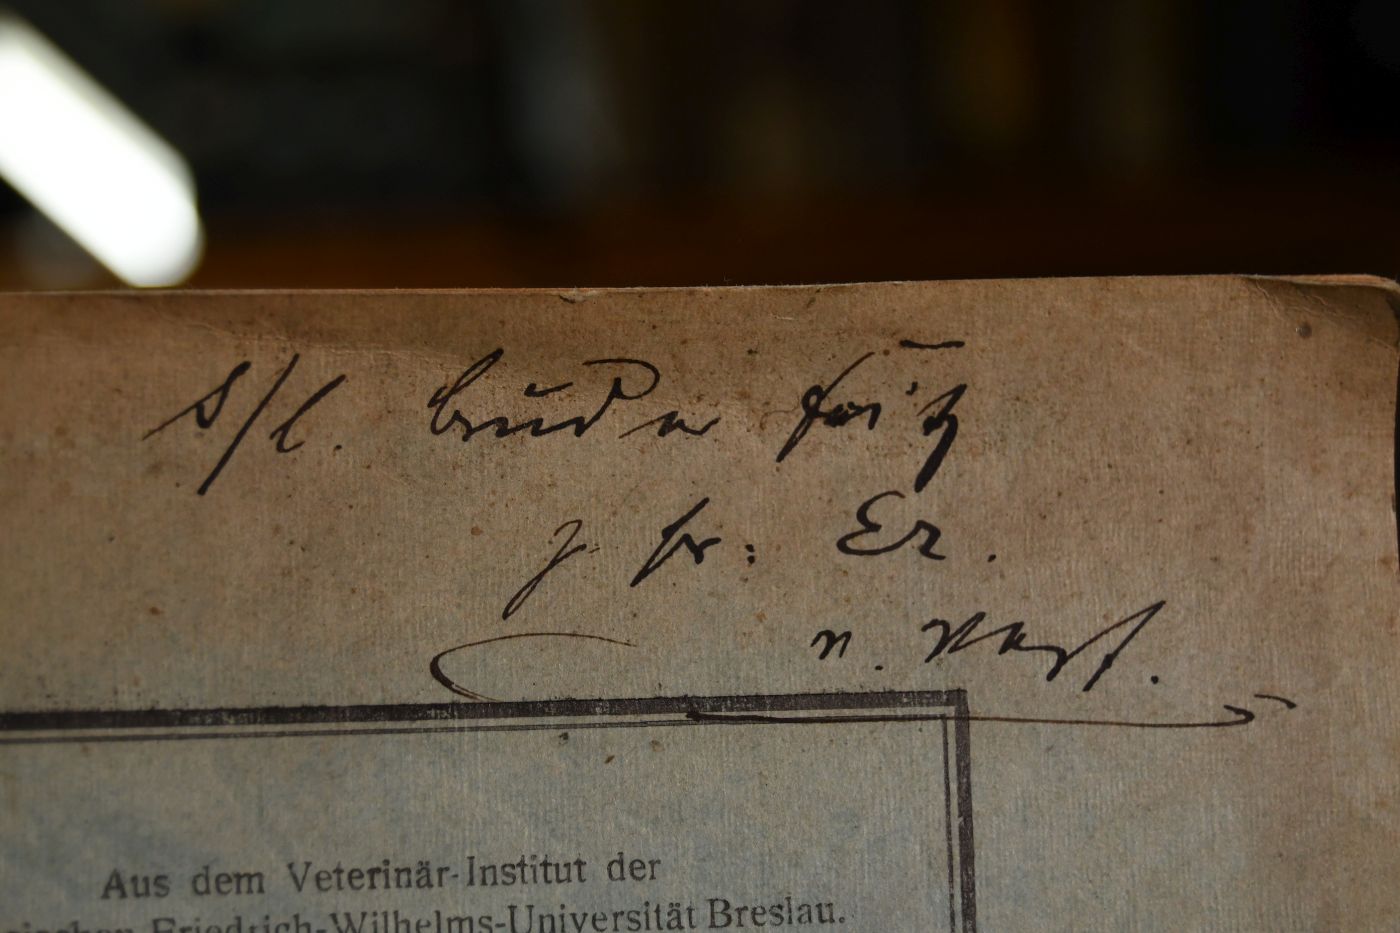 s/l. Bruder Fritz
z. fr: Er.
n. Verf.
Aus dem Veterinär-Institut der
Friedrich-Wilhelms-Universität Breslau.